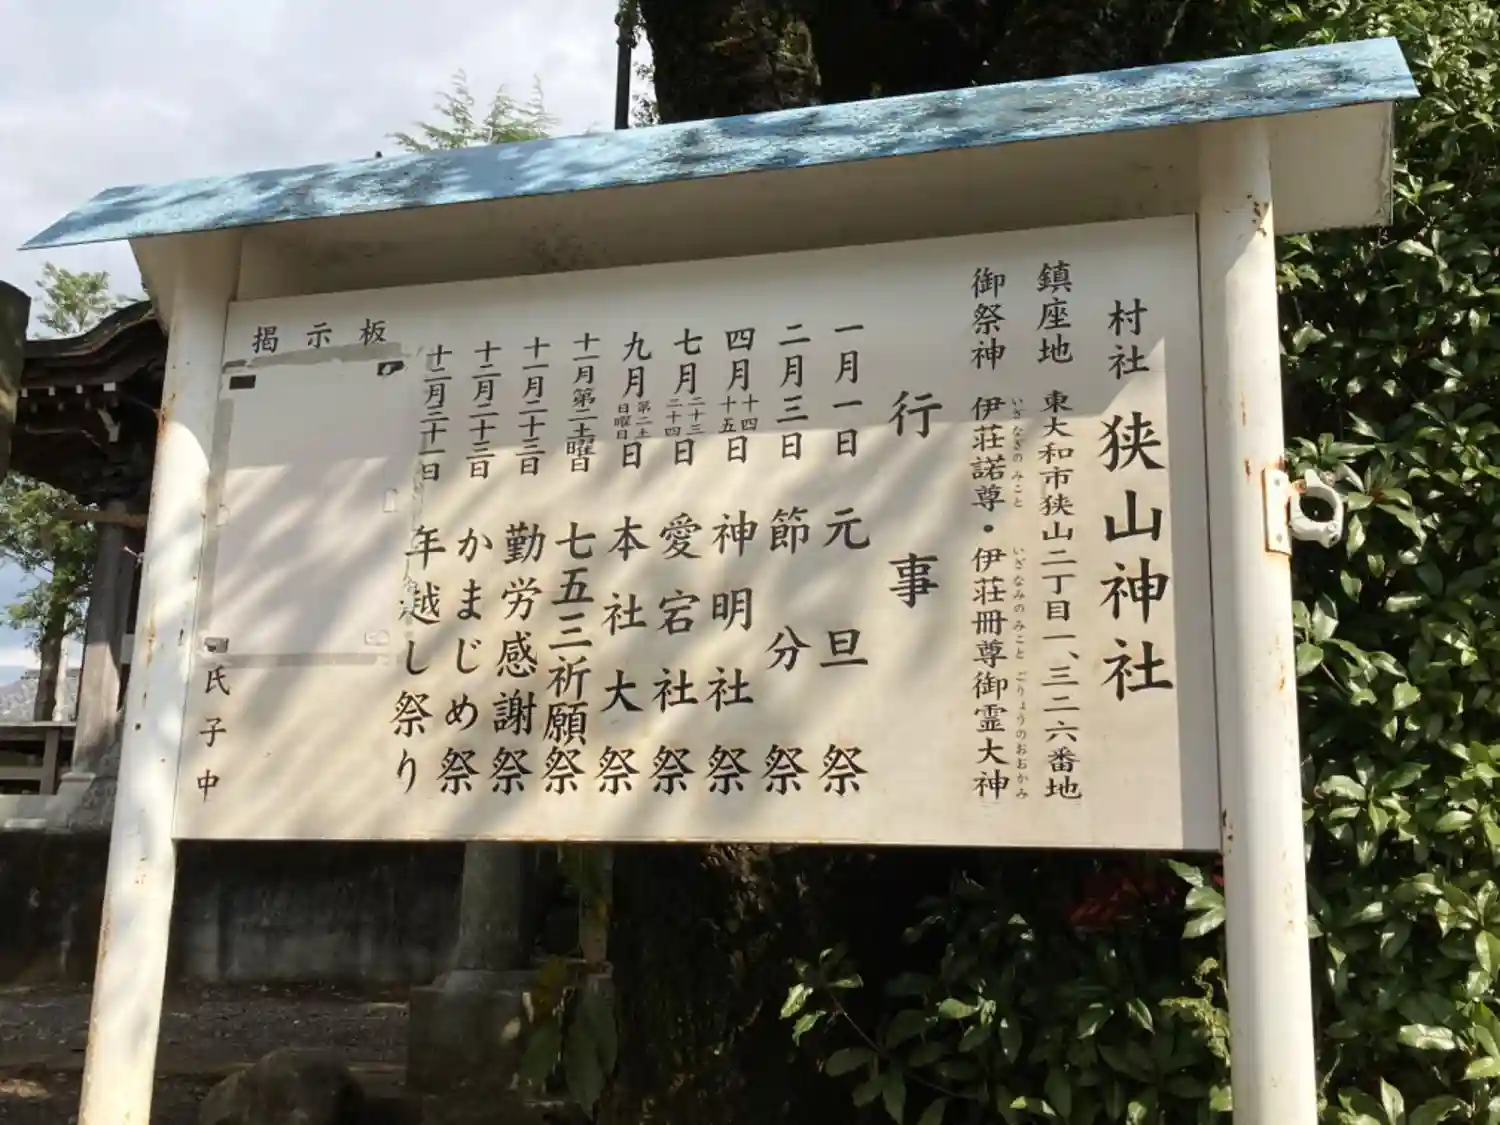 村社 狭山神社
鎮座地 東大和市狭山二丁目一、三二六番地
御祭神 伊荘諾尊・伊荘冊尊御霊大神
いざなぎのみこと いざなみのみこと ごりょうのおおかみ
行事
一月一日 元旦祭
二月三日 節分祭
四月十四十五日 神明社祭
七月二十三二十四日 愛宕社祭
九月第二土曜日日 本社大祭
十一月第二土曜日 七五三祈願祭
十一月二十三日 勤労感謝祭
十二月二十三日 かまじめ祭
十二月三十一日 年越し祭り
掲示板
氏子中